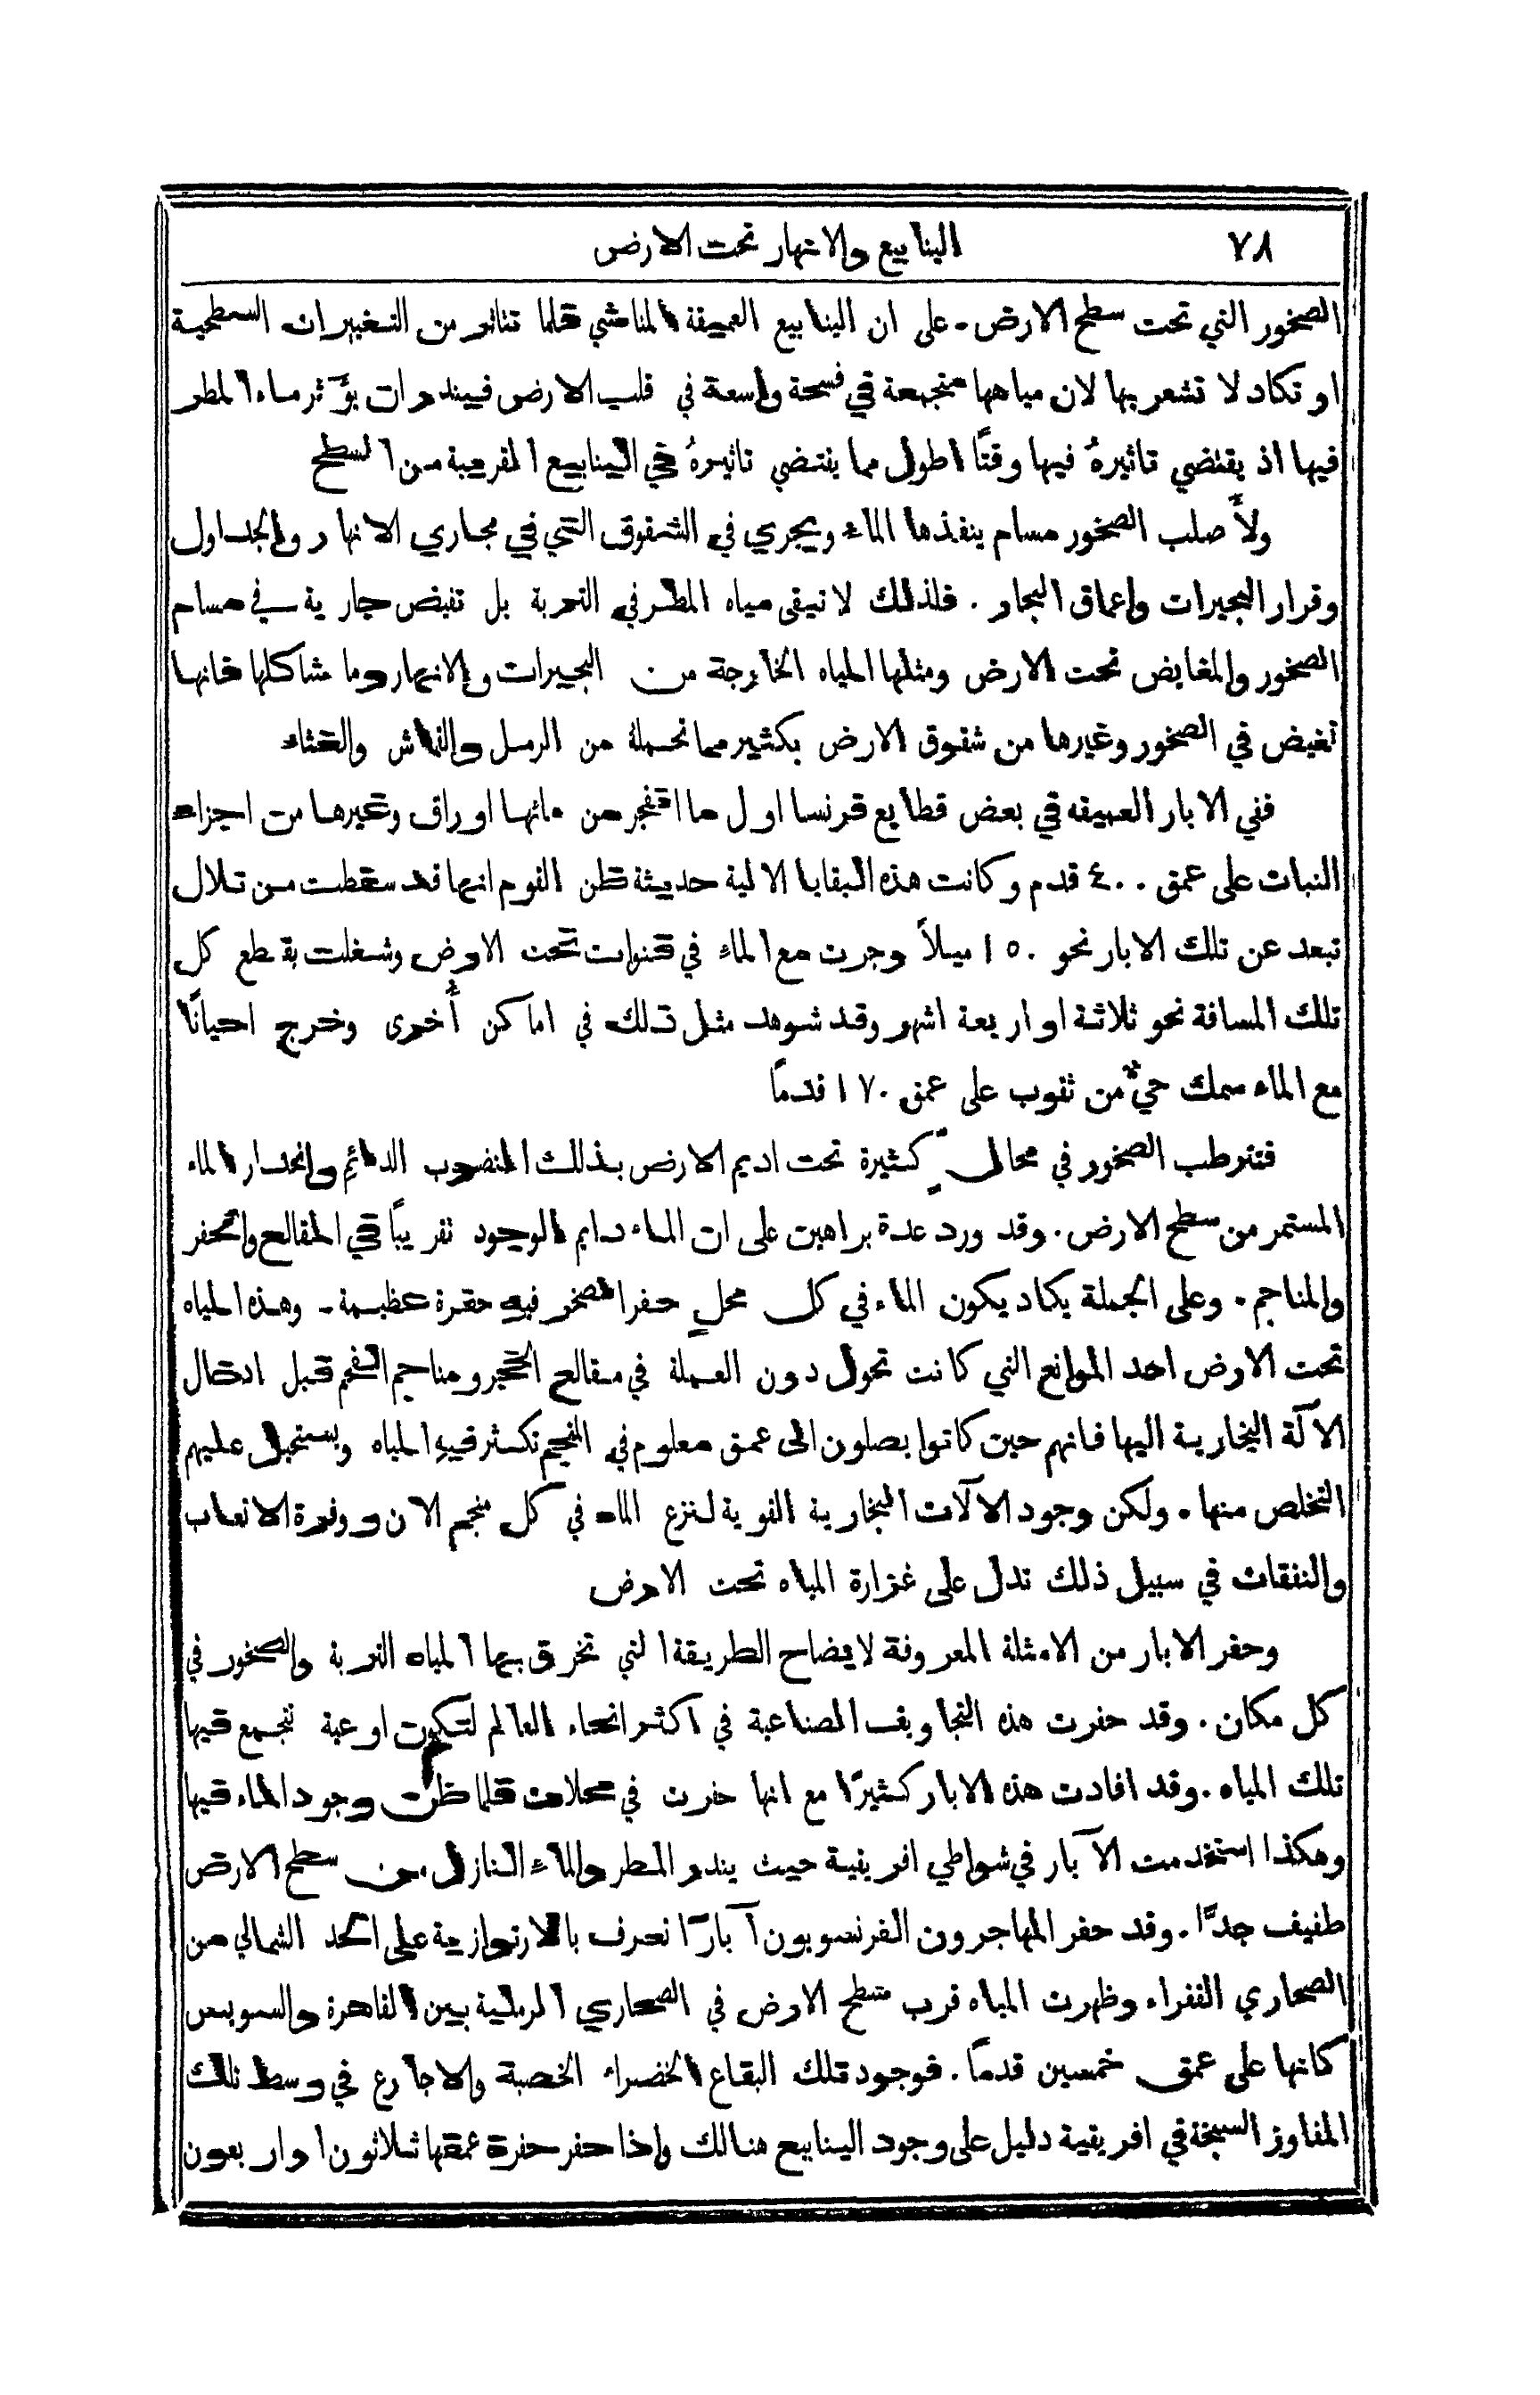 ٧٨ الينابيع والانهار تحت الارض
الصخور التي تحت سطح الارض. على ان الينابيع العميقة المناشي قلما تتاثر من التغييرات السطحية
او تكاد لا تشعر بها لان مياهها متجمعة في فسحة واسعة في قلب الارض فيندر ان يؤثر ماء المطر
فيها اذ يقتضي تاثيرهُ فيها وقتًا اطول مما يقتضي تاثيرهُ في الينابيع القريبة من السطح
ولأَصلب الصخور مسام ينفذها الماء ويجري في الشقوق التي في مجاري الانهار والجداول
وقرار البحيرات واعماق البحار. فلذلك لا تبقى مياه المطر في التربة بل تفيض جارية في مسام
الصخور والمغايض تحت الارض ومثلها المياه الخارجة من البحيرات والانهار وما شاكلها فانها
تغيض في الصخور وغيرها من شقوق الارض بكثير مما تحملهُ من الرمل والقماش والقثاء
ففي الابار العميقه في بعض قطايع فرنسا اول ما انفجر من مائها اوراق وغيرها من اجزاء
النبات على عمق ٤٠٠ قدم وكانت هذه البقايا الالية حديثة ظن القوم انها قد سقطت من تلال
تبعد عن تلك الابار نحو ١٥٠ ميلاً وجرت مع الماء في قنوات تحت الارض وشغلت بقطع كل
تلك المسافة نحو ثلاثة او اربعة اشهر وقد شوهد مثل ذلك في اماكن أُخرى وخرج احيانًا
مع الماء سمك حيٌّ من ثقوب على عمق ١٧٠ قدمًا
فتترطب الصخور في محالٍّ كثيرة تحت اديم الارض بذلك النضوب الدائم وانحدار الماء
المستمر من سطح الارض. وقد ورد عدة براهين على ان الماء دايم الوجود تقريبًا في المقالع والحفر
والمناجم. وعلى الجملة يكاد يكون الماء في كل محلٍ حفر الصخر فيه حفرة عظيمة. وهذه المياه
تحت الارض احد الموانع التي كانت تحول دون العملة في مقالع الحجر ومناجم الفحم قبل ادخال
الآلة البخارية اليها فانهم حين كانوا يصلون الى عمق معلوم في المنجم تكثر فيهِ المياه ويستحيل عليهم
التخلص منها. ولكن وجود الالآت البخارية القوية لنزع الماء في كل منجم الان ووفرة الاتعاب
والنفقات في سبيل ذلك تدل على غزارة المياه تحت الارض
وحفر الابار من الامثلة المعروفة لايضاح الطريقة التي تخرق بها المياه التربة والصخور في
كل مكان. وقد حفرت هذه التجاويف الصناعية في اكثر انحاء العالم لتكون اوعية تتجمع فيها
تلك المياه. وقد افادت هذه الابار كثيرًا مع انها حفرت في محلات قلما ظن وجود الماء فيها
وهكذا استخدمت الآبار في شواطي افريقية حيث يندر المطر والماء النازل من سطح الارض
طفيف جدًّا. وقد حفر المهاجرون الفرنسويون آبارًا تعرف بالارتوازية على الحد الشمالي من
الصحاري القفراء وظهرت المياه قرب سطح الارض في الصحاري الرملية بين القاهرة والسويس
كانها على عمق خمسين قدمًا. فوجود تلك البقاع الخضراء الخصبة والاجارع في وسط تلك
المفاوز السبخة في افريقية دليل على وجود الينابيع هنالك واذا حفر حفرة عمقها ثلاثون او اربعون